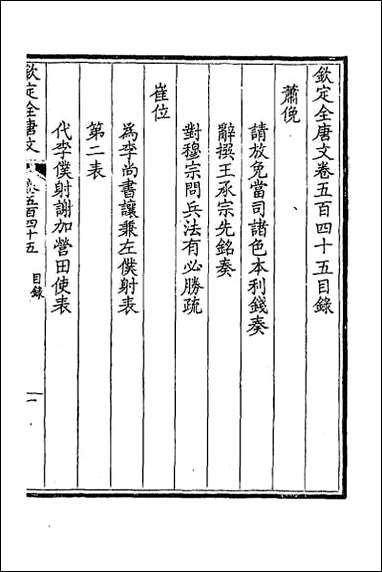 欽定全唐文卷五百四十五目錄
蕭俛
請放免當司諸色本利錢奏
辭撰王承宗先銘奏
對穆宗問兵法有必勝疏
崔位
爲李尚書讓兼左僕射表
第二表
代李僕射謝加營田使表
欽定全唐文
卷五百四十五
目錄
一